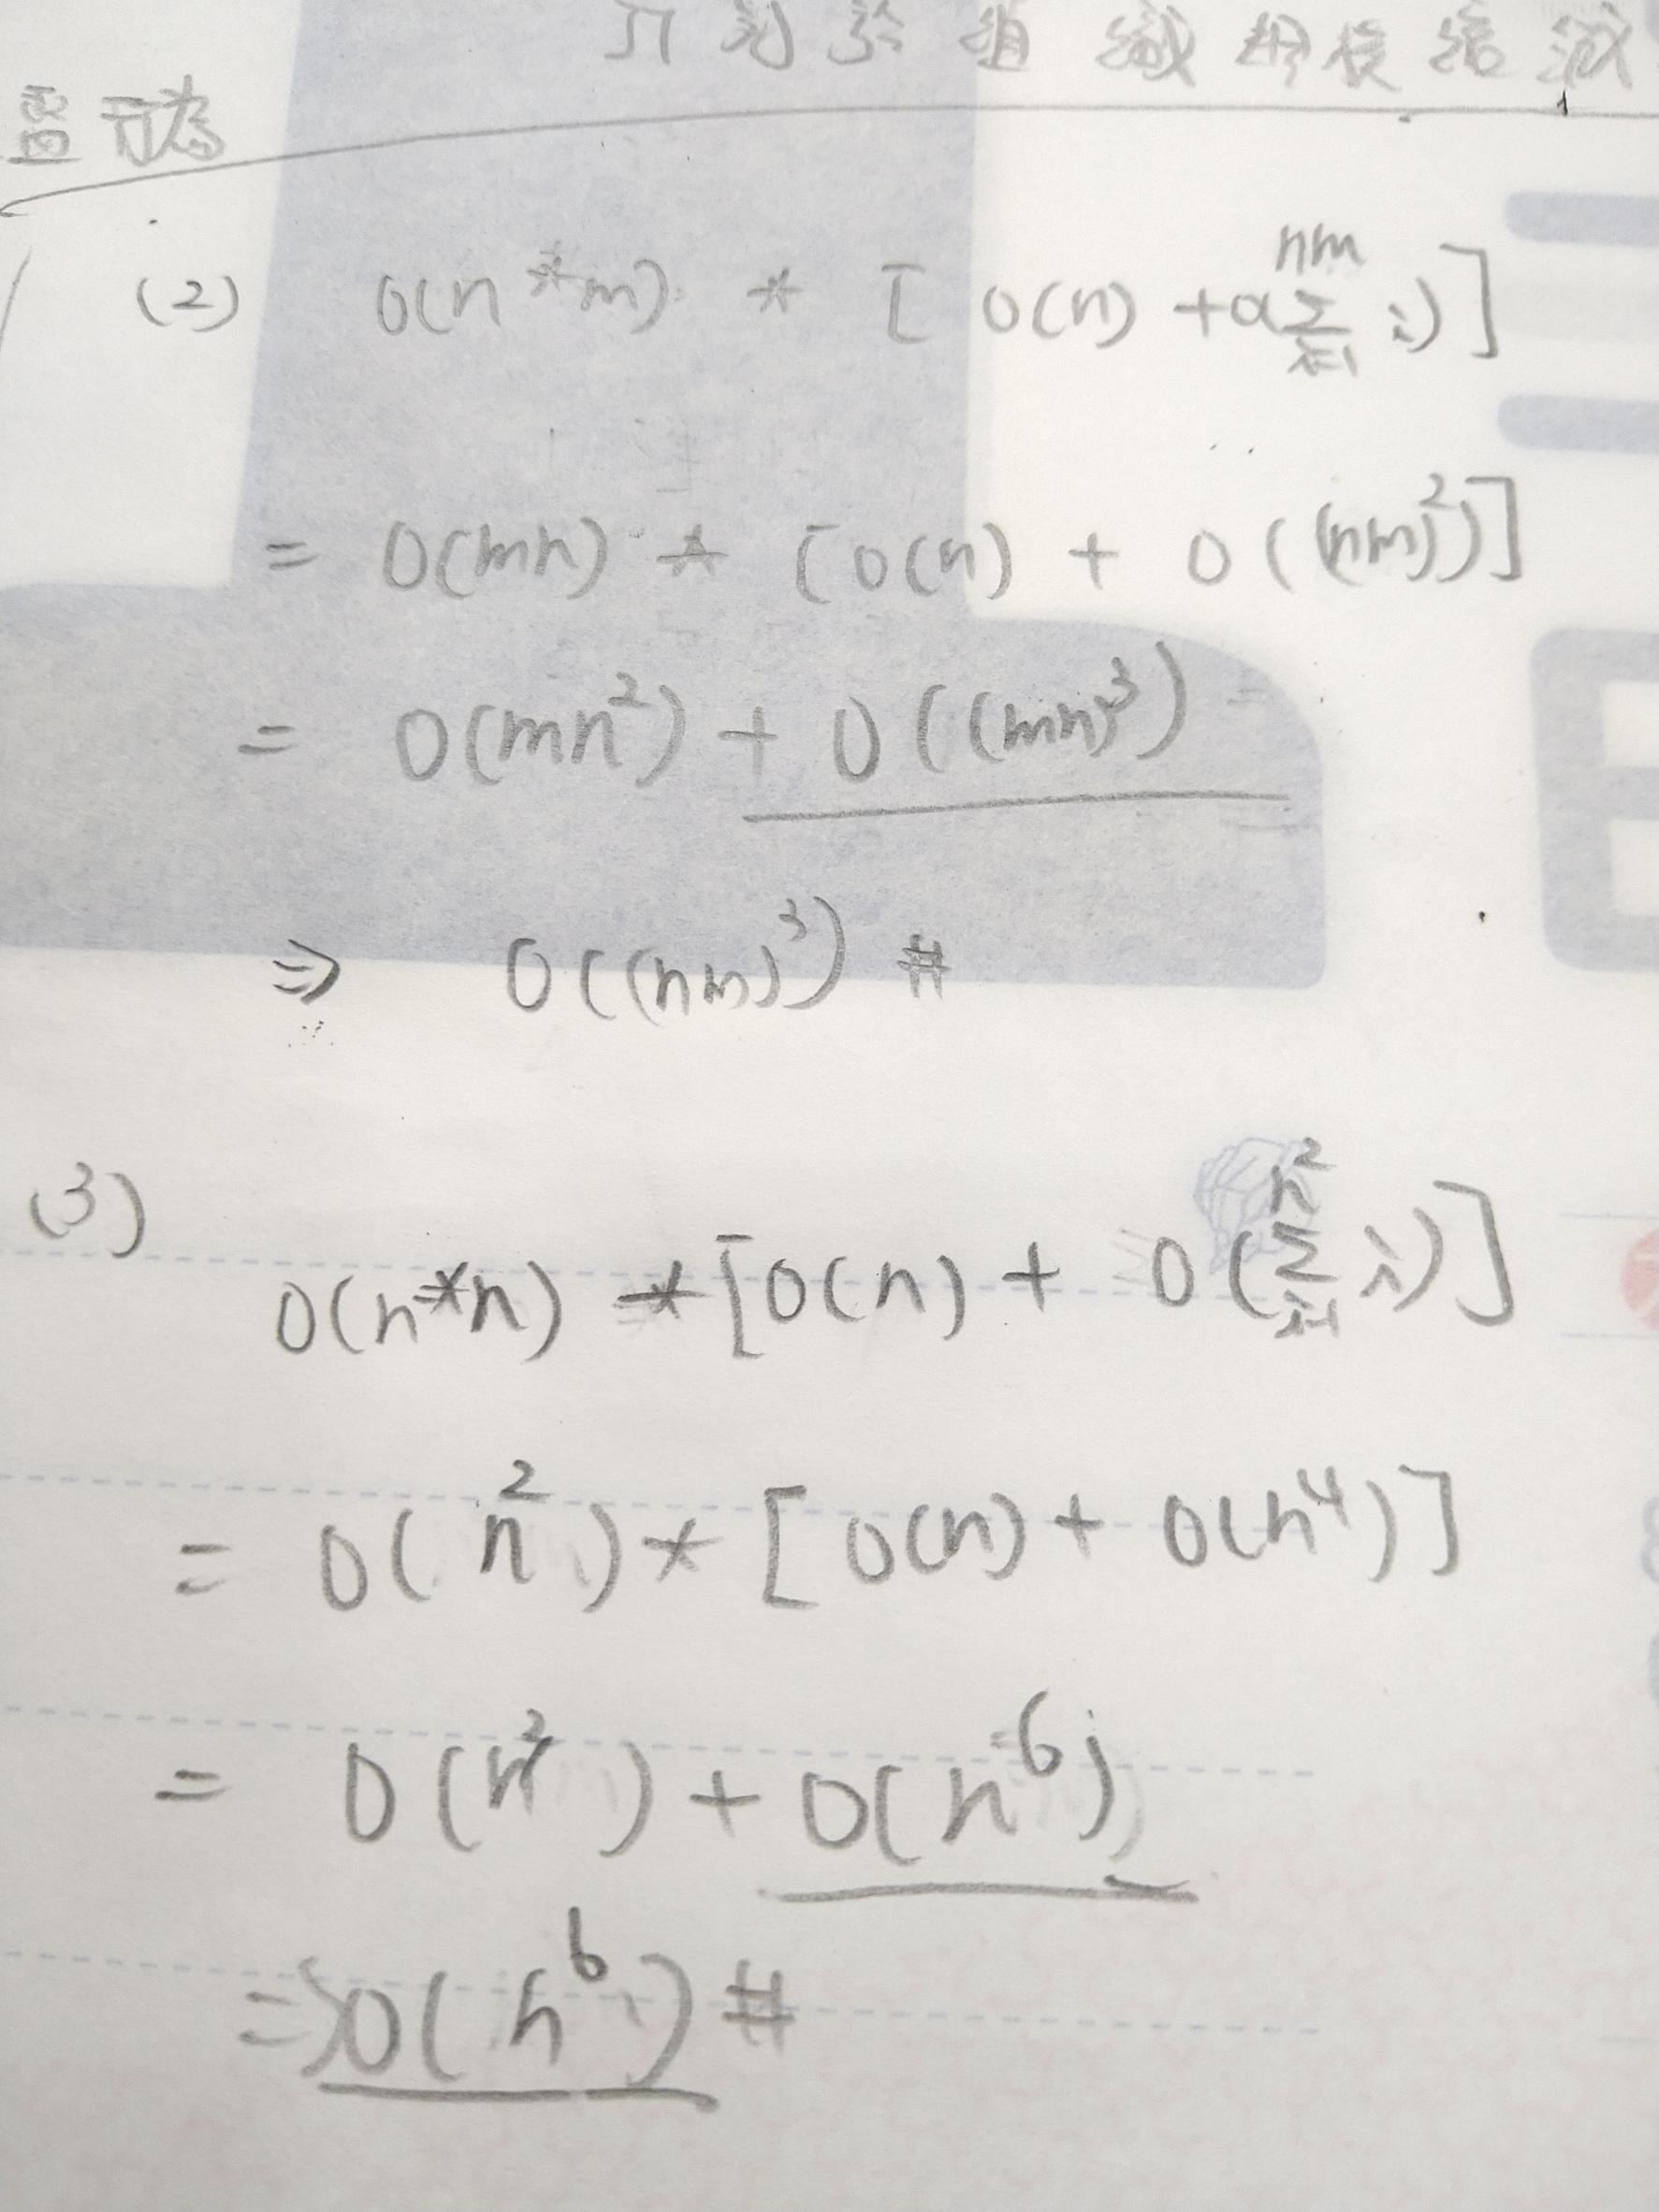 組織
為
(2) O(n*m) * [O(n) + O(nm∑i=1 i)]
= O(mn) * [O(n) + O((nm)²)]
= O(mn²) + O((mn)³)
⇒ O((nm)³) #
(3)
O(n*n) * [O(n) + O(n²∑i=1 i)]
= O(n²) * [O(n) + O(n⁴)]
= O(n²) + O(n⁶)
⇒ O(n⁶) #